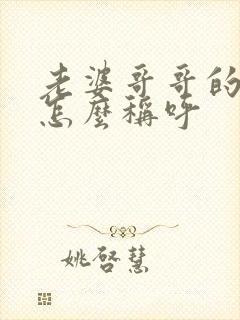 老婆哥哥的
怎麼稱呼
姚啓慧